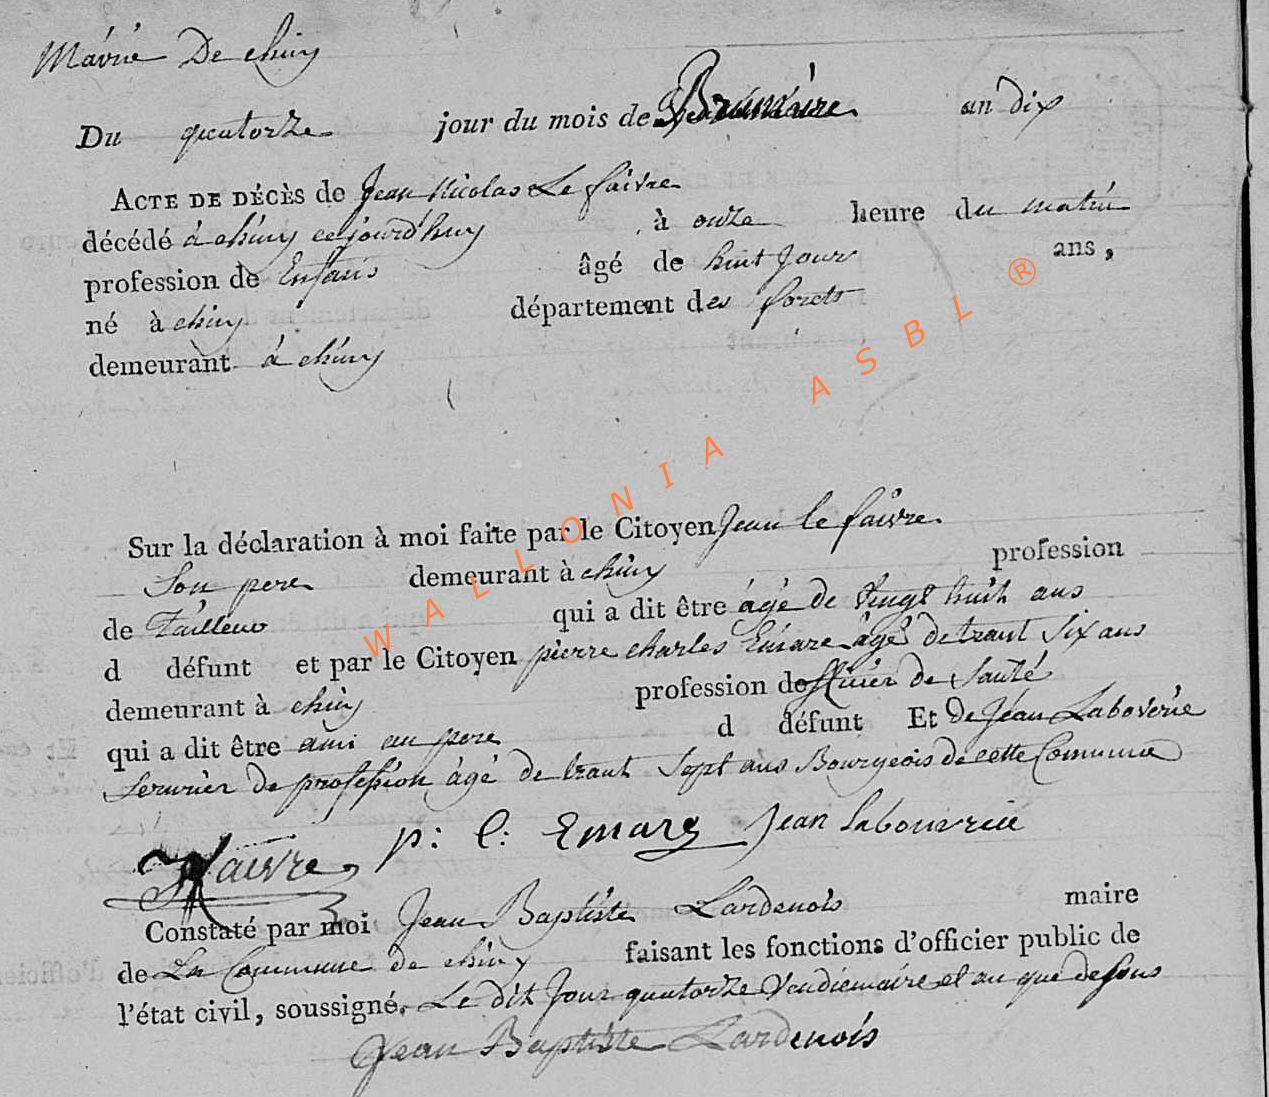 Mairie De chiny
Du quatorze jour du mois de Brumaire an dix
ACTE DE DÉCÈS de Jean Nicolas Le faivre
décédé à chiny cejourd'huy à onze heure du matin
profession de Enfans âgé de huit Jours ans,
né à chiny département des forets
demeurant à chiny
WALLONIA ASBL ®
Sur la déclaration à moi faite par le Citoyen Jean le faivre
Son pere demeurant à chiny profession
de Tailleur qui a dit être âgé de Vingt huit ans
d défunt et par le Citoyen pierre charles Emare âgé de trant Six ans
demeurant à chiny profession de officier de Santé
qui a dit être ami au pere d défunt Et De Jean Laboverie
Serurier de profession âgé de trant Sept ans Bourgeois de cette Commune
faivre p: C: Emare Jean Labouvrie
Constaté par moi Jean Baptiste Lardenois maire
de La Commune de chiny faisant les fonctions d'officier public de
l'état civil, soussigné. Le dit Jour quatorze Vendiemaire et an que dessus
Jean Baptiste Lardenois